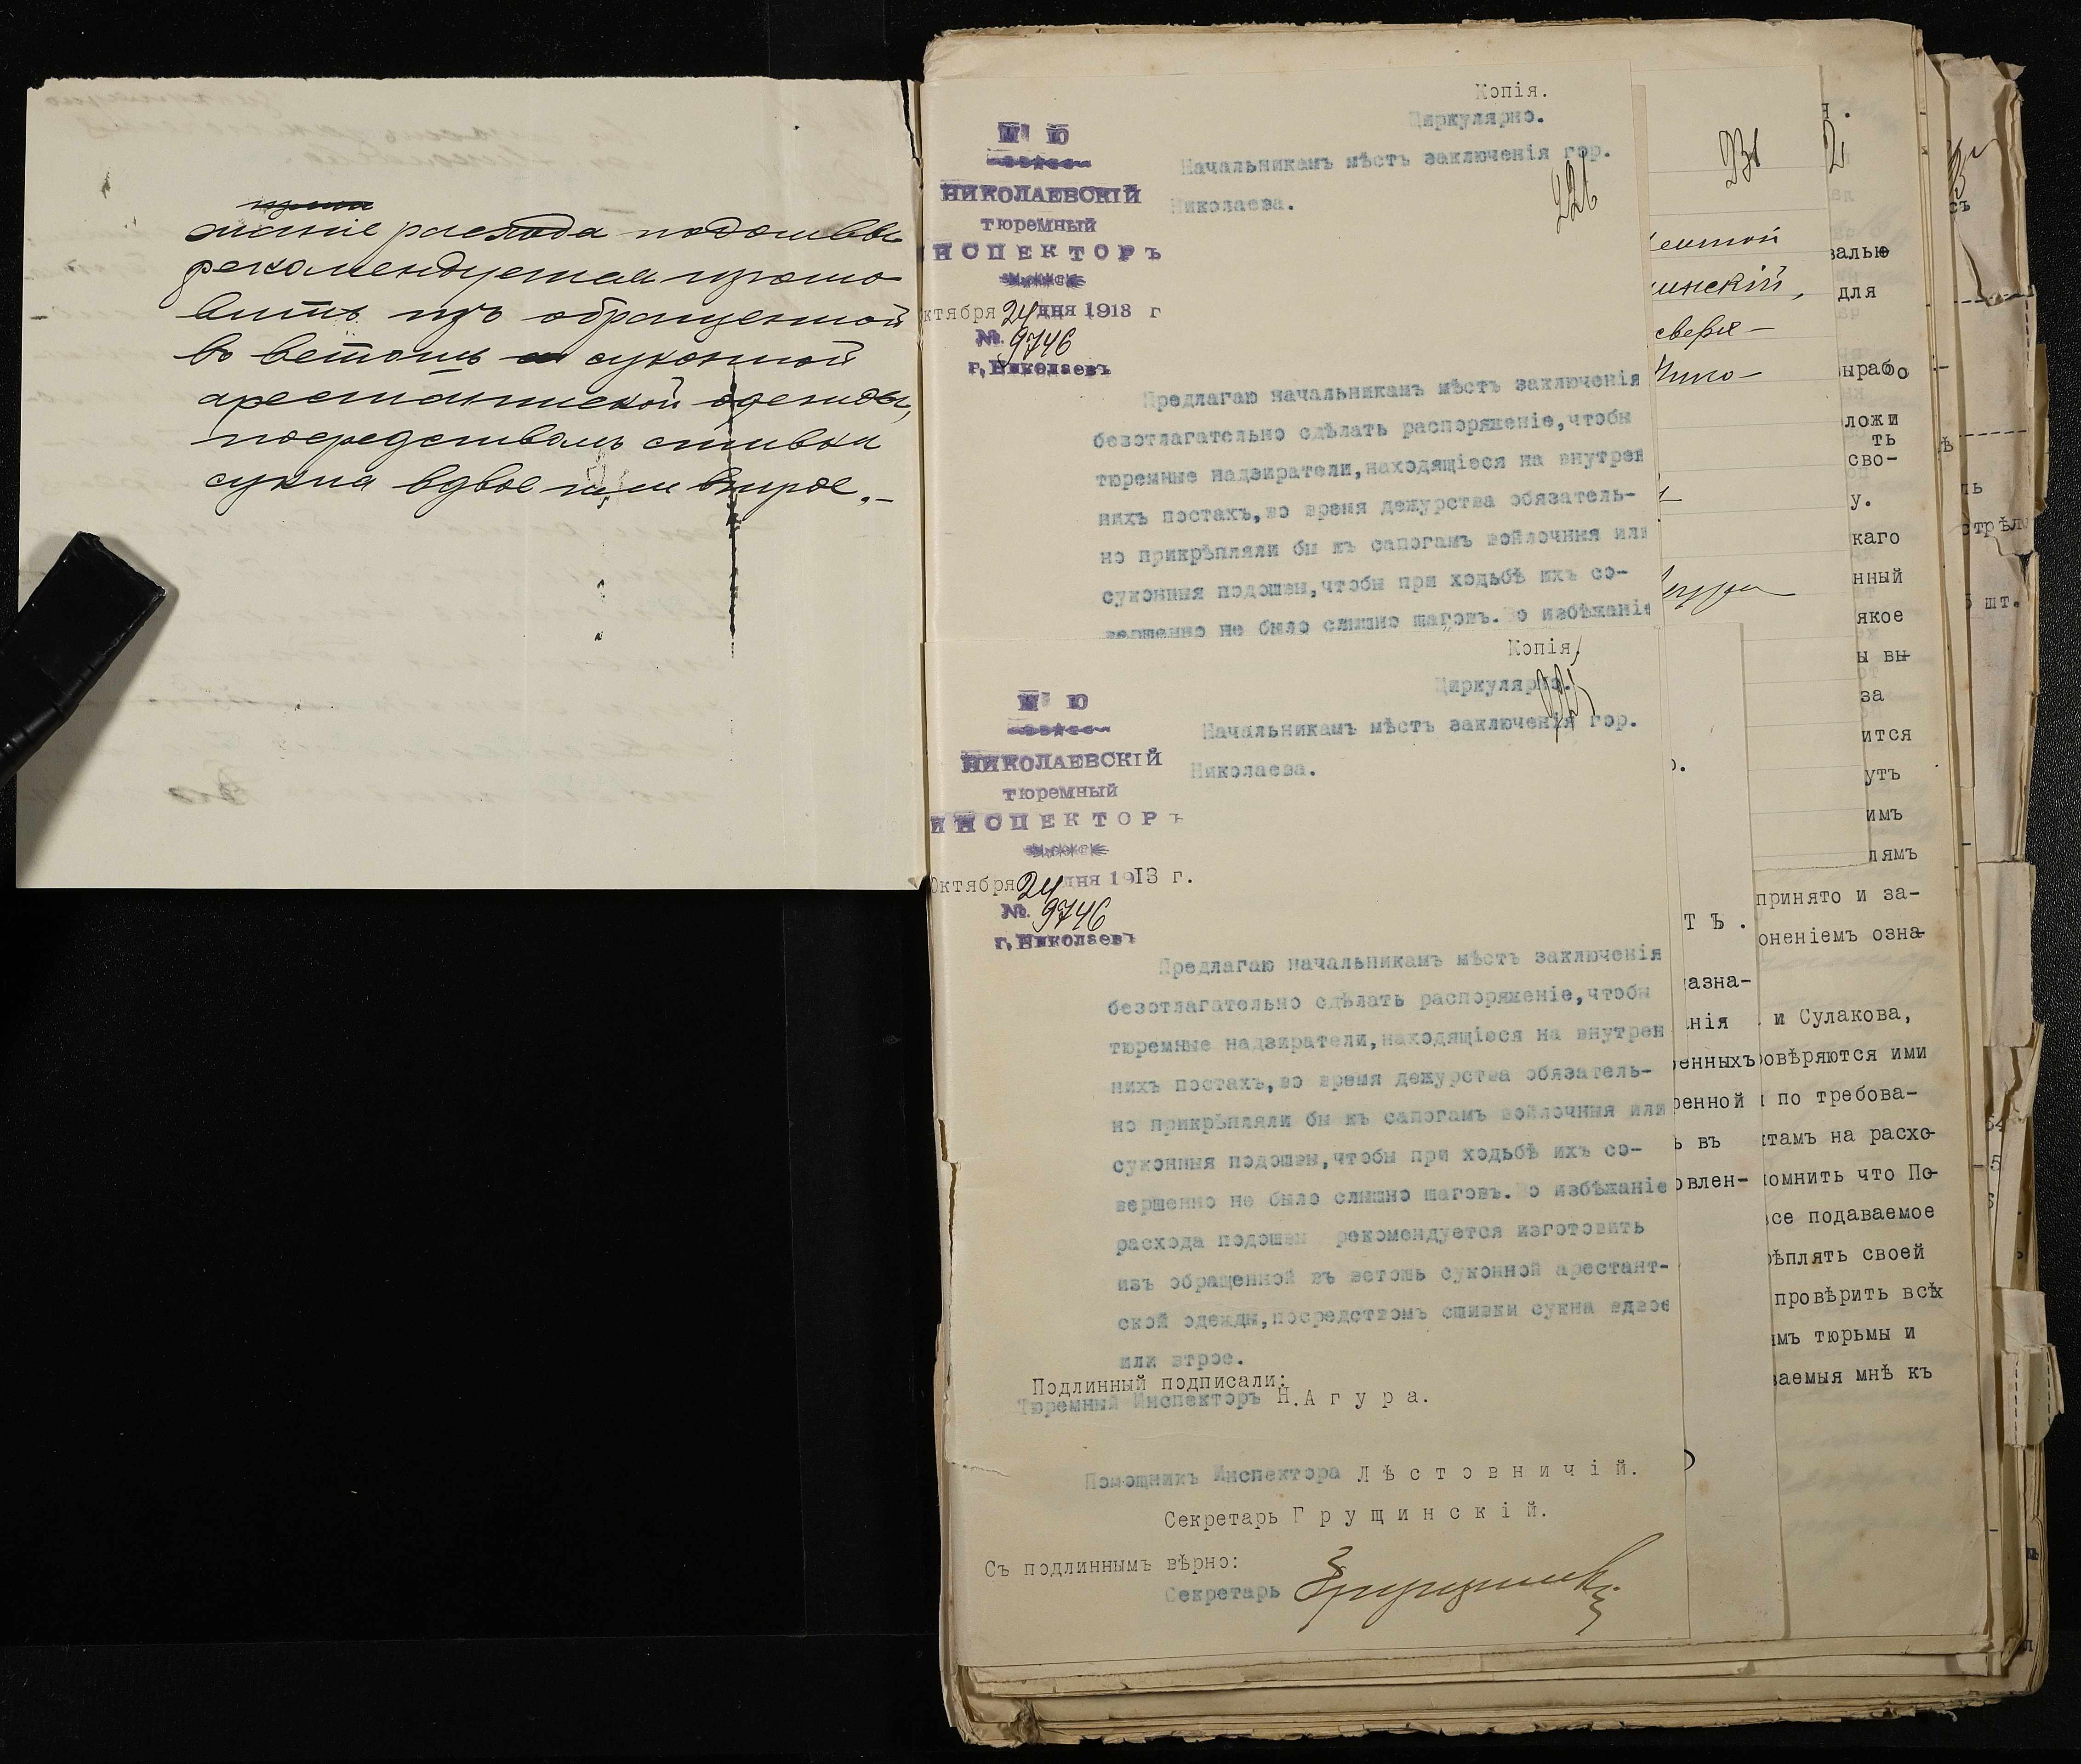 жаніе расхода подошвы
рекомендуется изгото
вить изъ обращенной
въ ветошь суконной
арестантской одежды,
посредствомъ сшивки
сукна вдвое или втрое.–
Копія.
Циркулярно.
226
Начальникамъ мѣстъ заключенія гор.
Николаева.
М Ю
НИКОЛАЕВСКІЙ
тюремный
НСПЕКТОРЪ
ктября 24 дня 1913 г
№ 9746
г. Николаевъ
Предлагаю начальникамъ мѣстъ заключенія
безотлагательно сдѣлать распоряженіе,чтобы
тюремные надзиратели,находящіеся на внутрен
нихъ постахъ,во время дежурства обязатель-
но прикрѣпляли бы къ сапогамъ войлочныя или
суконныя подошвы,чтобы при ходьбѣ ихъ со-
вершенно не было слышно шаговъ.Во избѣжаніе
Копія.
Циркулярно.
Начальникамъ мѣстъ заключенія гор.
Николаева.
М Ю
НИКОЛАЕВСКІЙ
тюремный
ИНСПЕКТОРЪ
Октября 24 дня 1913 г.
№ 9746
г. Николаевъ
Предлагаю начальникамъ мѣстъ заключенія
безотлагательно сдѣлать распоряженіе,чтобы
тюремные надзиратели,находящіеся на внутрен
нихъ постахъ,во время дежурства обязатель-
но прикрѣпляли бы къ сапогамъ войлочныя или
суконныя подошвы,чтобы при ходьбѣ ихъ со-
вершенно не было слышно шаговъ.Во избѣжаніе
расхода подошвы рекомендуется изготовить
изъ обращенной въ ветошь суконной арестант-
ской одежды,посредствомъ сшивки сукна вдвое
или втрое.
Подлинный подписали:
Тюремный Инспекторъ Н.Агура.
Помощникъ Инспектора Лѣстовничій.
Секретарь Грущинскій.
Съ подлиннымъ вѣрно:
Секретарь
сверх–
валью
для
ырабо
ложи
ть
сво-
у.
каго
нный
якое
ы вы
за
ится
утъ
имъ
лямъ
принято и за-
оненіемъ озна-
и Сулакова,
овѣряются ими
по требова-
ктамъ на расхо-
омнить что По-
все подаваемое
ѣплять своей
провѣрить всѣх
имъ тюрьмы и
ваемыя мнѣ къ
ТЪ.
азна-
нія
енныхъ
ренной
ь въ
овлен-
стрѣл
шт.